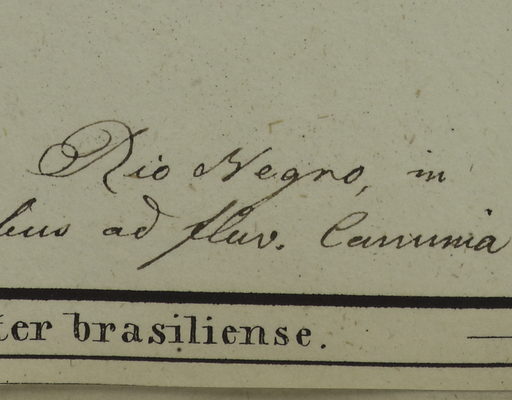 Rio Negro, in
bus ad fluv. Canumá
ter brasiliense.